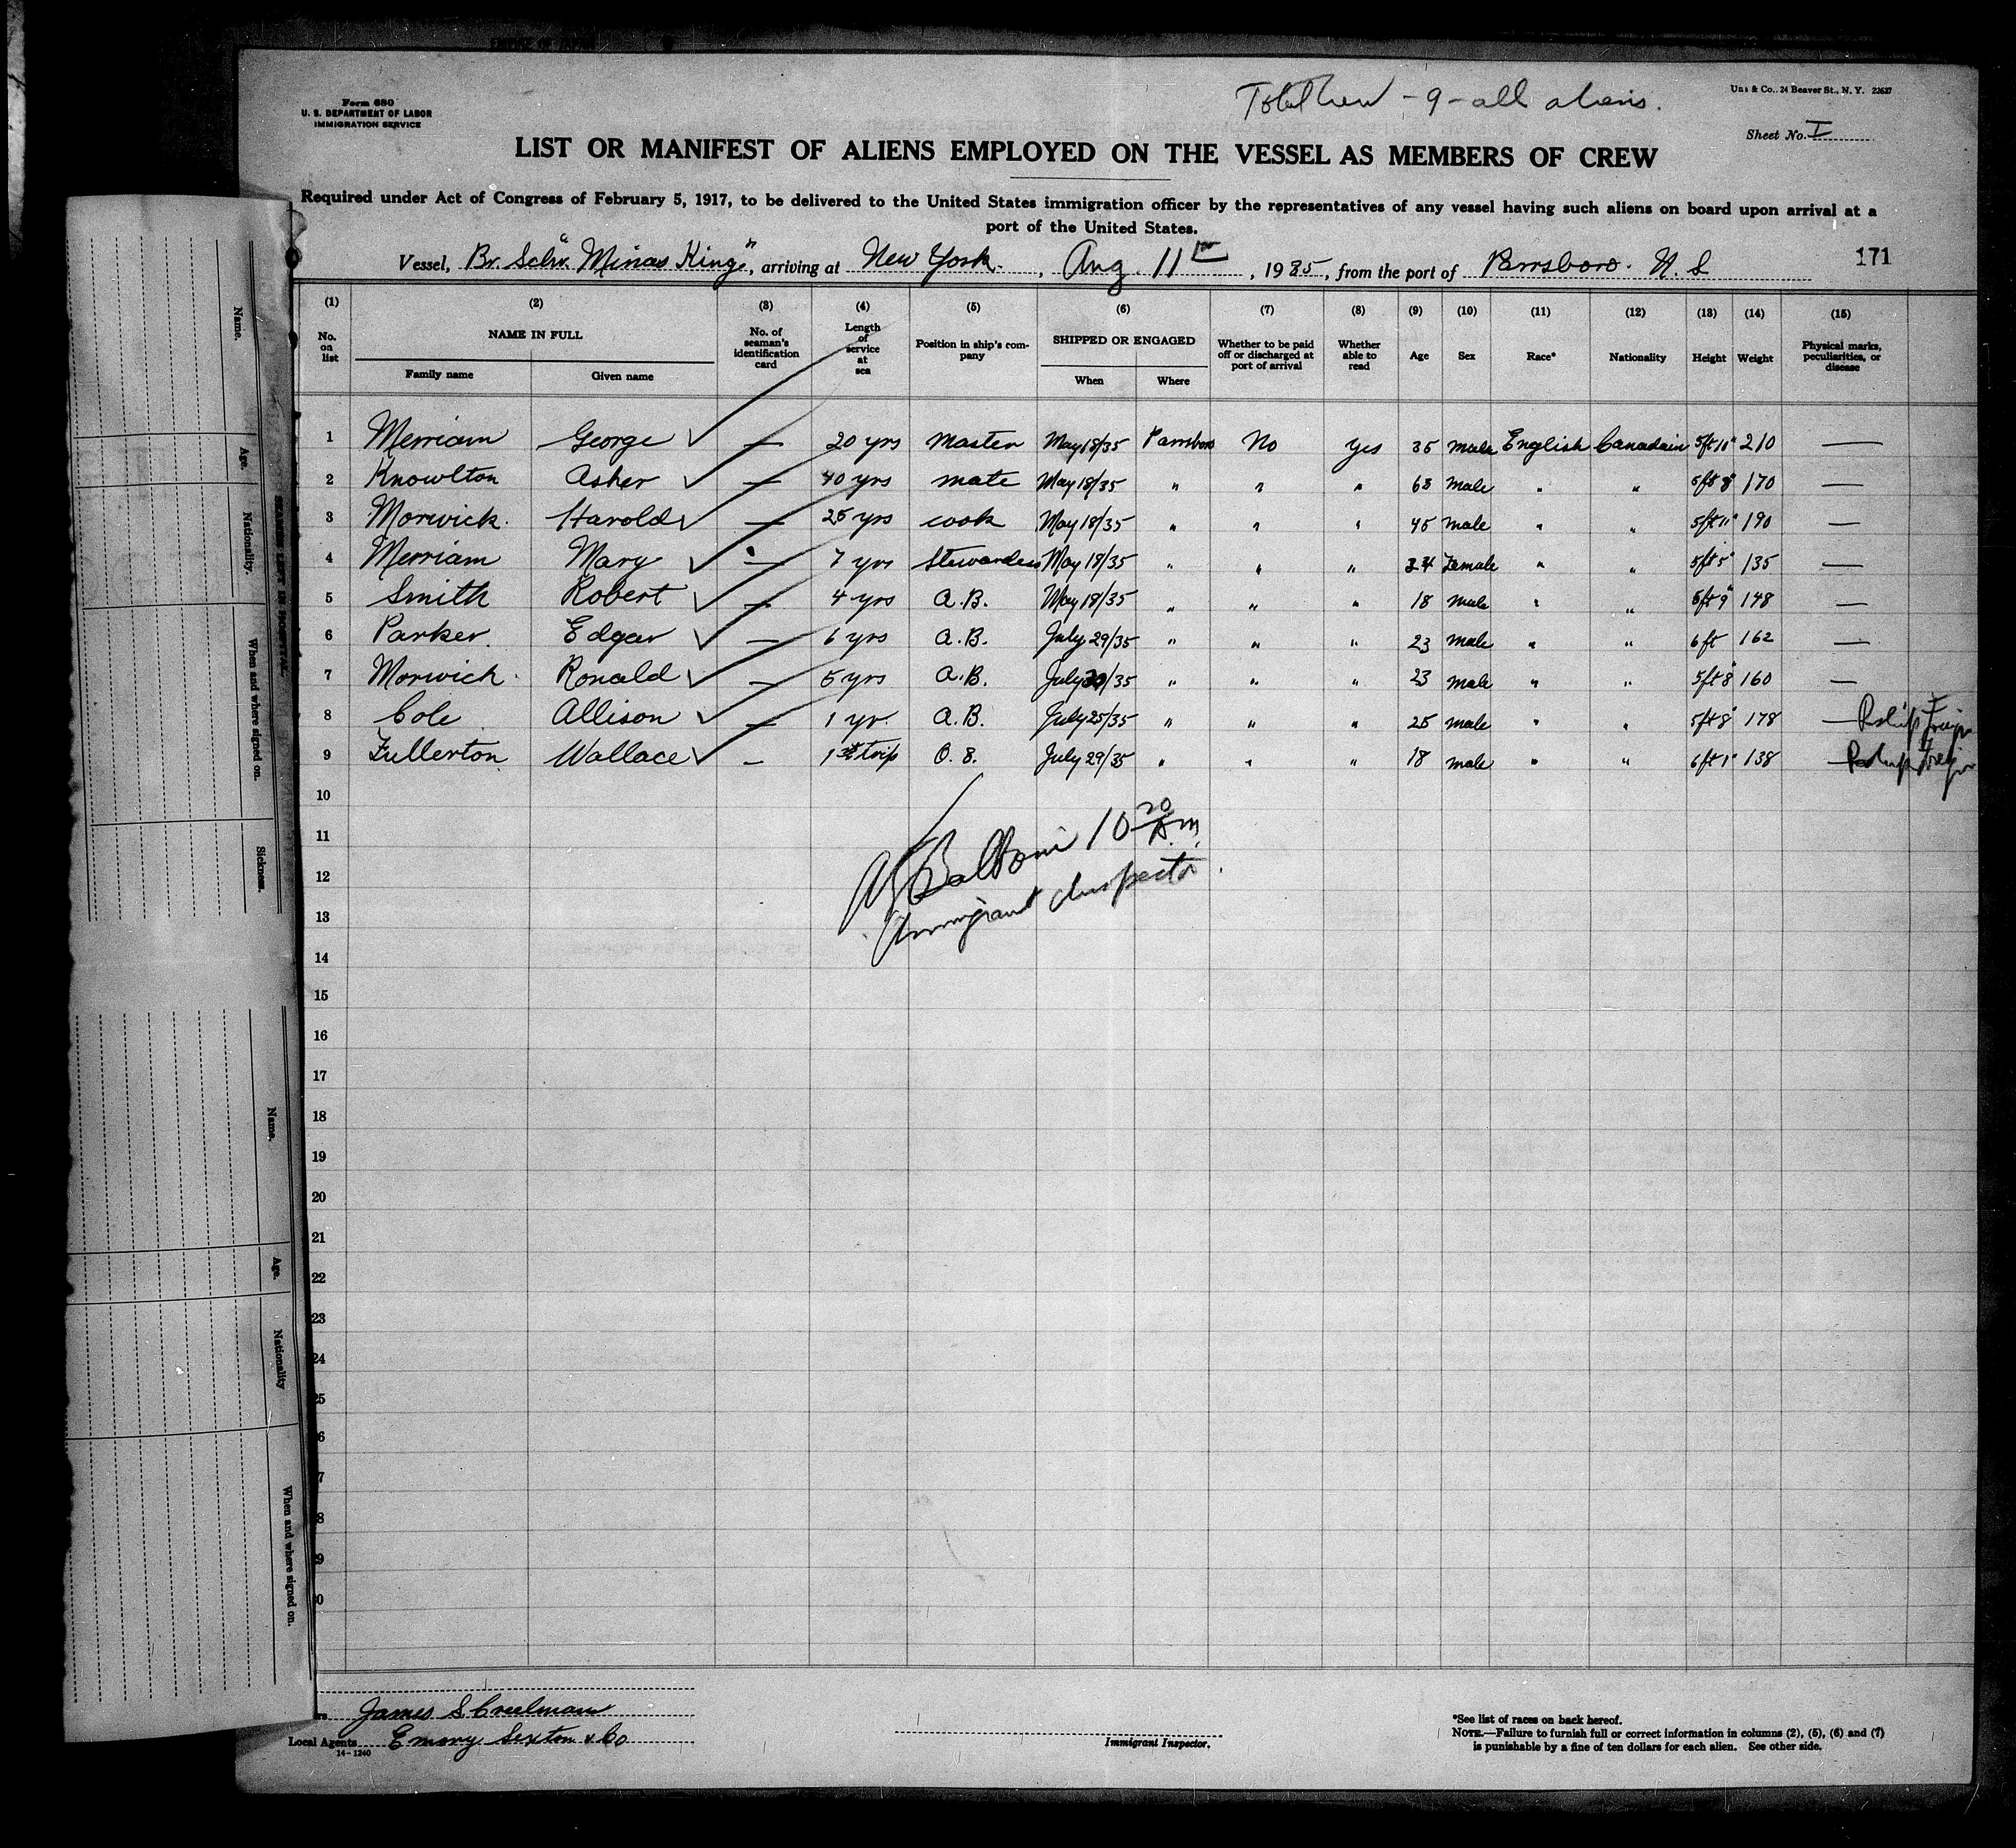 Form 680
U. S. DEPARTMENT OF LABOR
IMMIGRATION SERVICE
Total Crew - 9 - all aliens.
& Co., 24 Beaver St., N. Y. 22627
Sheet No. I
LIST OR MANIFEST OF ALIENS EMPLOYED ON THE VESSEL AS MEMBERS OF CREW
Required under Act of Congress of February 5, 1917, to be delivered to the United States immigration officer by the representatives of any vessel having such aliens on board upon arrival at a
port of the United States.
Vessel, Br. Schr. "Minas King", arriving at New York, Aug 11th, 1935, from the port of Parrsboro. N. S
171
(1) (2) (3) (4) (5) (6) (7) (8) (9) (10) (11) (12) (13) (14) (15)
No. on list
NAME IN FULL
Family name Given name
No. of seaman's identification card
Length of service at sea
Position in ship's company
SHIPPED OR ENGAGED
When Where
Whether to be paid off or discharged at port of arrival
Whether able to read
Age
Sex
Race*
Nationality
Height
Weight
Physical marks, peculiarities, or disease
1 Merriam George ✓ — 20 yrs Master May 18/35 Parrsboro No Yes 35 male English Canadain 5ft 11" 210 —
2 Knowlton Asher ✓ — 40 yrs mate May 18/35 " " " 63 male " " 5ft 8" 170 —
3 Morwick. Harold ✓ — 25 yrs cook May 18/35 " " " 45 male " " 5ft 11" 190 —
4 Merriam Mary ✓ — 7 yrs Stewardess May 18/35 " " " 34 Female " " 5ft 5" 135 —
5 Smith Robert ✓ — 4 yrs A.B. May 18/35 " " " 18 male " " 5ft 9" 148 —
6 Parker. Edgar ✓ — 6 yrs A.B. July 29/35 " " " 23 male " " 6 ft 162 —
7 Morwick. Ronald ✓ — 5 yrs A.B. July 30/35 " " " 23 male " " 5ft 8" 160 —
8 Cole Allison ✓ — 1 yr. A.B. July 25/35 " " " 25 male " " 5ft 8" 178 —
9 Fullerton Wallace ✓ — 1st trip O.S. July 29/35 " " " 18 male " " 6 ft 1" 138 —
10
11
12
13
14
15
16
17
18
19
20
21
22
23
24
25
6
7
8
9
0
10 20 A.m.
Immigrant Inspector.
James S Creelman
Local Agents Emory Sexton & Co
14-1240
Immigrant Inspector.
*See list of races on back hereof.
NOTE.—Failure to furnish full or correct information in columns (2), (5), (6) and (7)
is punishable by a fine of ten dollars for each alien. See other side.
Name.
Age.
Nationality.
When and where signed on.
Sickness.
SEAMEN LEFT IN HOSPITAL
Name.
Age.
Nationality
When and where signed on.